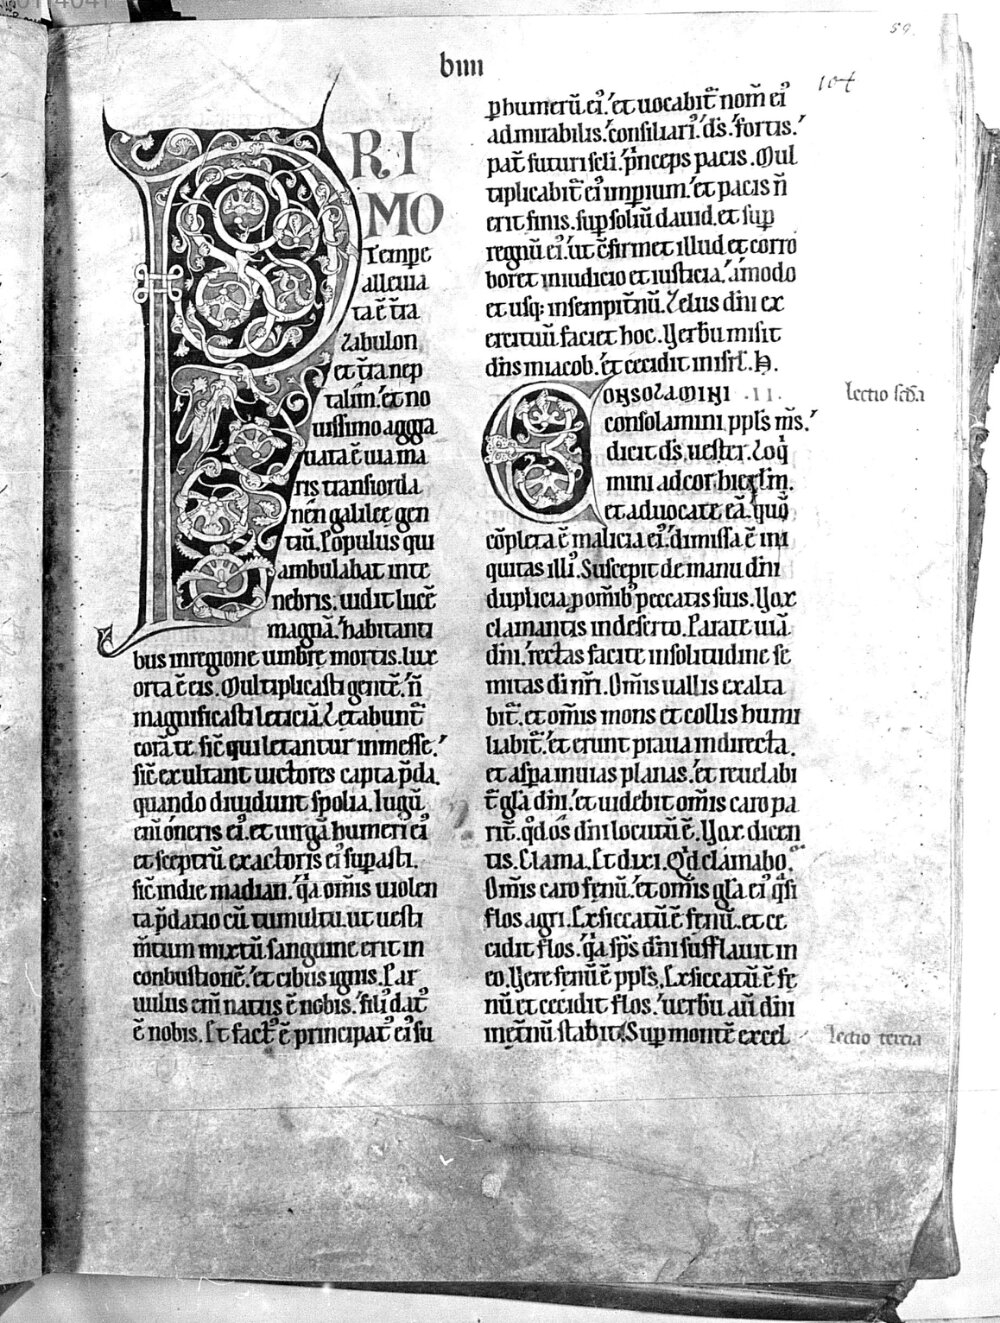 59
104
bıııı
PRI
MO
tempe
alleuia
ta ē t̄ra
zabulon
et t̄ra nep
talim. et no
uissimo aggra
uata ē uia ma
ris transiorda
nēn galilee gen
tiū. Populus qui
ambulabat inte
nebris. uidit lucē
magnā. habitanti
bus inregione umbre mortis. lux
orta ē eis. Multiplicasti gentē. ñ
magnificasti leticiā. Letabunt᷑
corā te sic̄ qui letantur inmesse.
sic̄ exultant uictores capta p̄da.
quando diuidunt spolia. Iugū
eni᷑ oneris ei᷒. et uirgā humeri ei᷒
et sceptrū exactoris ei᷒ supasti.
sic̄ indie madian. q̓a om̄is uiolen
ta p̄datio cū tumultu. ut uesti
m̄tum mixtū sanguine erit in
conbustionē. et cibus ignis. Par
uulus eni᷑ natus ē nobis. fili᷒ dat᷒
ē nobis. Et fact᷒ ē principat᷒ ei᷒ su
p humerū ei᷒. et uocabit᷑ nom̄ ei᷒
admirabilis. consiliari᷒. d̄s. fortis.
pat̄ futuri sc̄li. p̓nceps pacis. Mul
tiplicabit᷑ ei᷒ impium. et pacis ñ
erit finis. sup soliū dauid. et sup
regnū ei᷒. ut c̄firmet illud et corro
boret iniudicio et iusticia. amodo
et usq; insempit̄nū. Zelus dn̄i ex
ercituū faciet hoc. Uerbū misit
dn̄s iniacob. et cecidit inisrl̄. H.
CONSOLAMINI .II.
lectio sc̄da
consolamini ppl̄s m̄s.
dicit d̄s uester. Loq̓
mini ad cor hierl̄m.
et aduocate eā. quō
cōpleta ē malicia ei᷒. dimissa ē ini
quitas illi᷒. Suscepit de manu dn̄i
duplicia p om̄ib᷒ peccatis suis. Uox
clamantis indeserto. Parate uiā
dn̄i. rectas facite insolitudine se
mitas di nr̄i. Om̄is uallis exalta
bit᷑. et om̄is mons et collis humi
liabit᷑. et erunt praua indirecta.
et aspa inuias planas. et reuelabi
t᷑ gl̄a dn̄i. et uidebit om̄is caro pa
rit᷑. qd̄ os dn̄i locutū ē. Uox dicen
tis. Clama. Et dixi. Qd̄ clamabo.
Om̄is caro fenū. et om̄is gl̄a ei᷒ q̓si
flos agri. Exsiccatū ē fenū. et ce
cidit flos. q̓a sp̄s dn̄i sufflauit in
eo. Uere fenū ē ppl̄s. Exsiccatū ē fe
nū et cecidit flos. uerbū aū dn̄i
inet̄nū stabit. Sup montē excel
lectio tercia